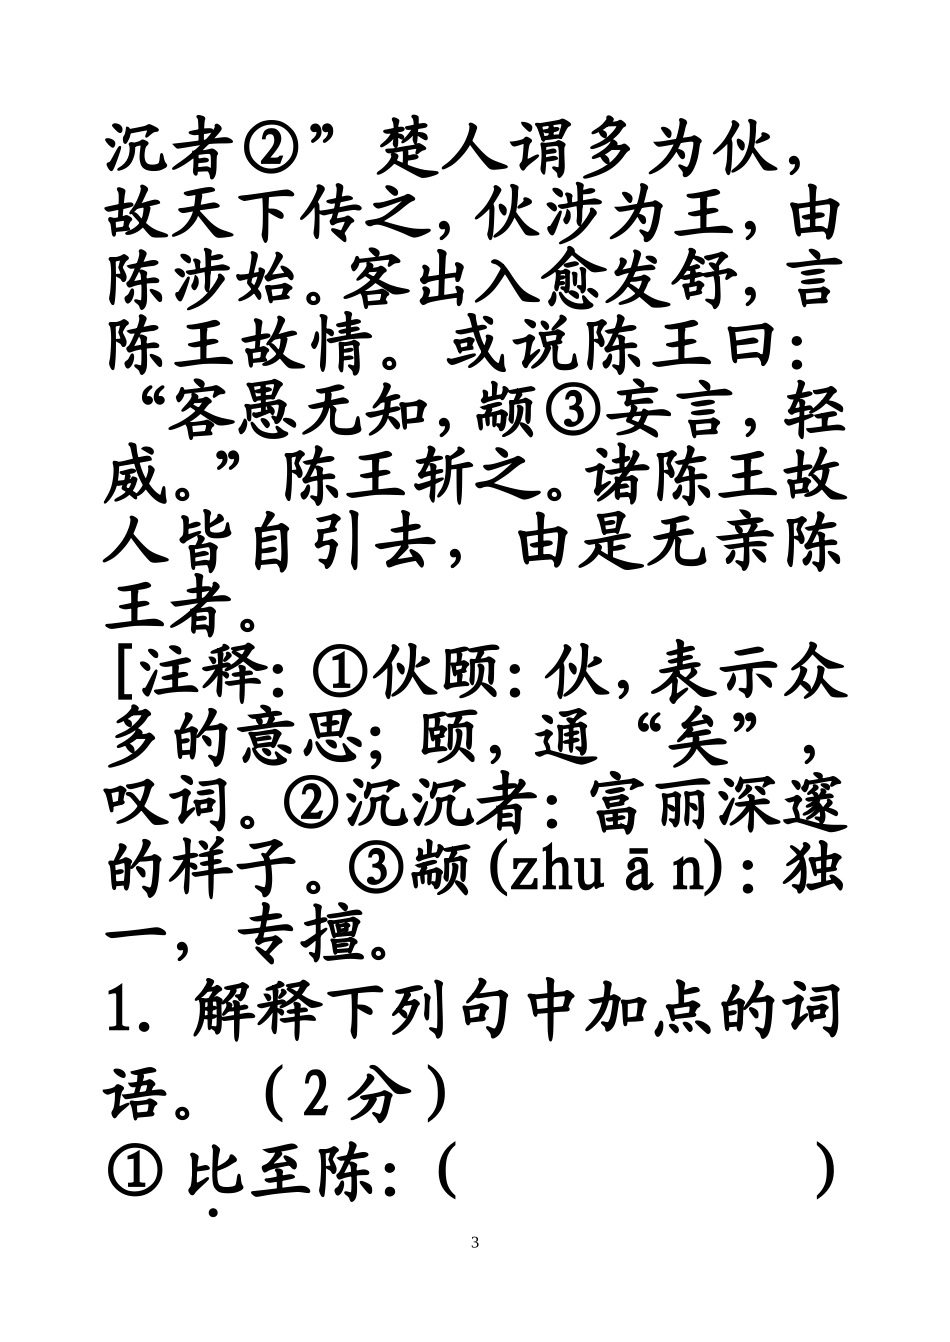 沉者②”楚人谓多为伙，
故天下传之，伙涉为王，由
陈涉始。客出入愈发舒，言
陈王故情。或说陈王曰：
“客愚无知，颛③妄言，轻
威。”陈王斩之。诸陈王故
人皆自引去，由是无亲陈
王者。
[注释：①伙颐：伙，表示众
多的意思；颐，通“矣”，
叹词。②沉沉者：富丽深邃
的样子。③颛(zhuān)：独
一，专擅。
1. 解释下列句中加点的词
语。（2分）
①比至陈：(    )
3